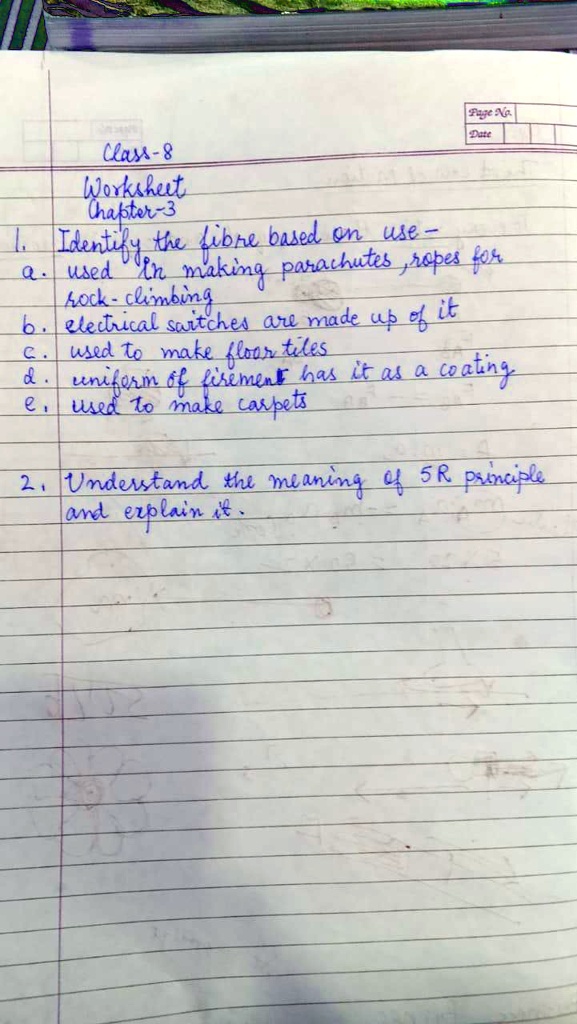 Page No.
Date
Class-8
Worksheet
Chapter-3
1. Identify the fibre based on use -
a. used in making parachutes, ropes for
rock-climbing
b. electrical switches are made up of it
c. used to make floor tiles
d. uniform of firement has it as a coating
e. used to make carpets
2. Understand the meaning of 5R principle
and explain it.